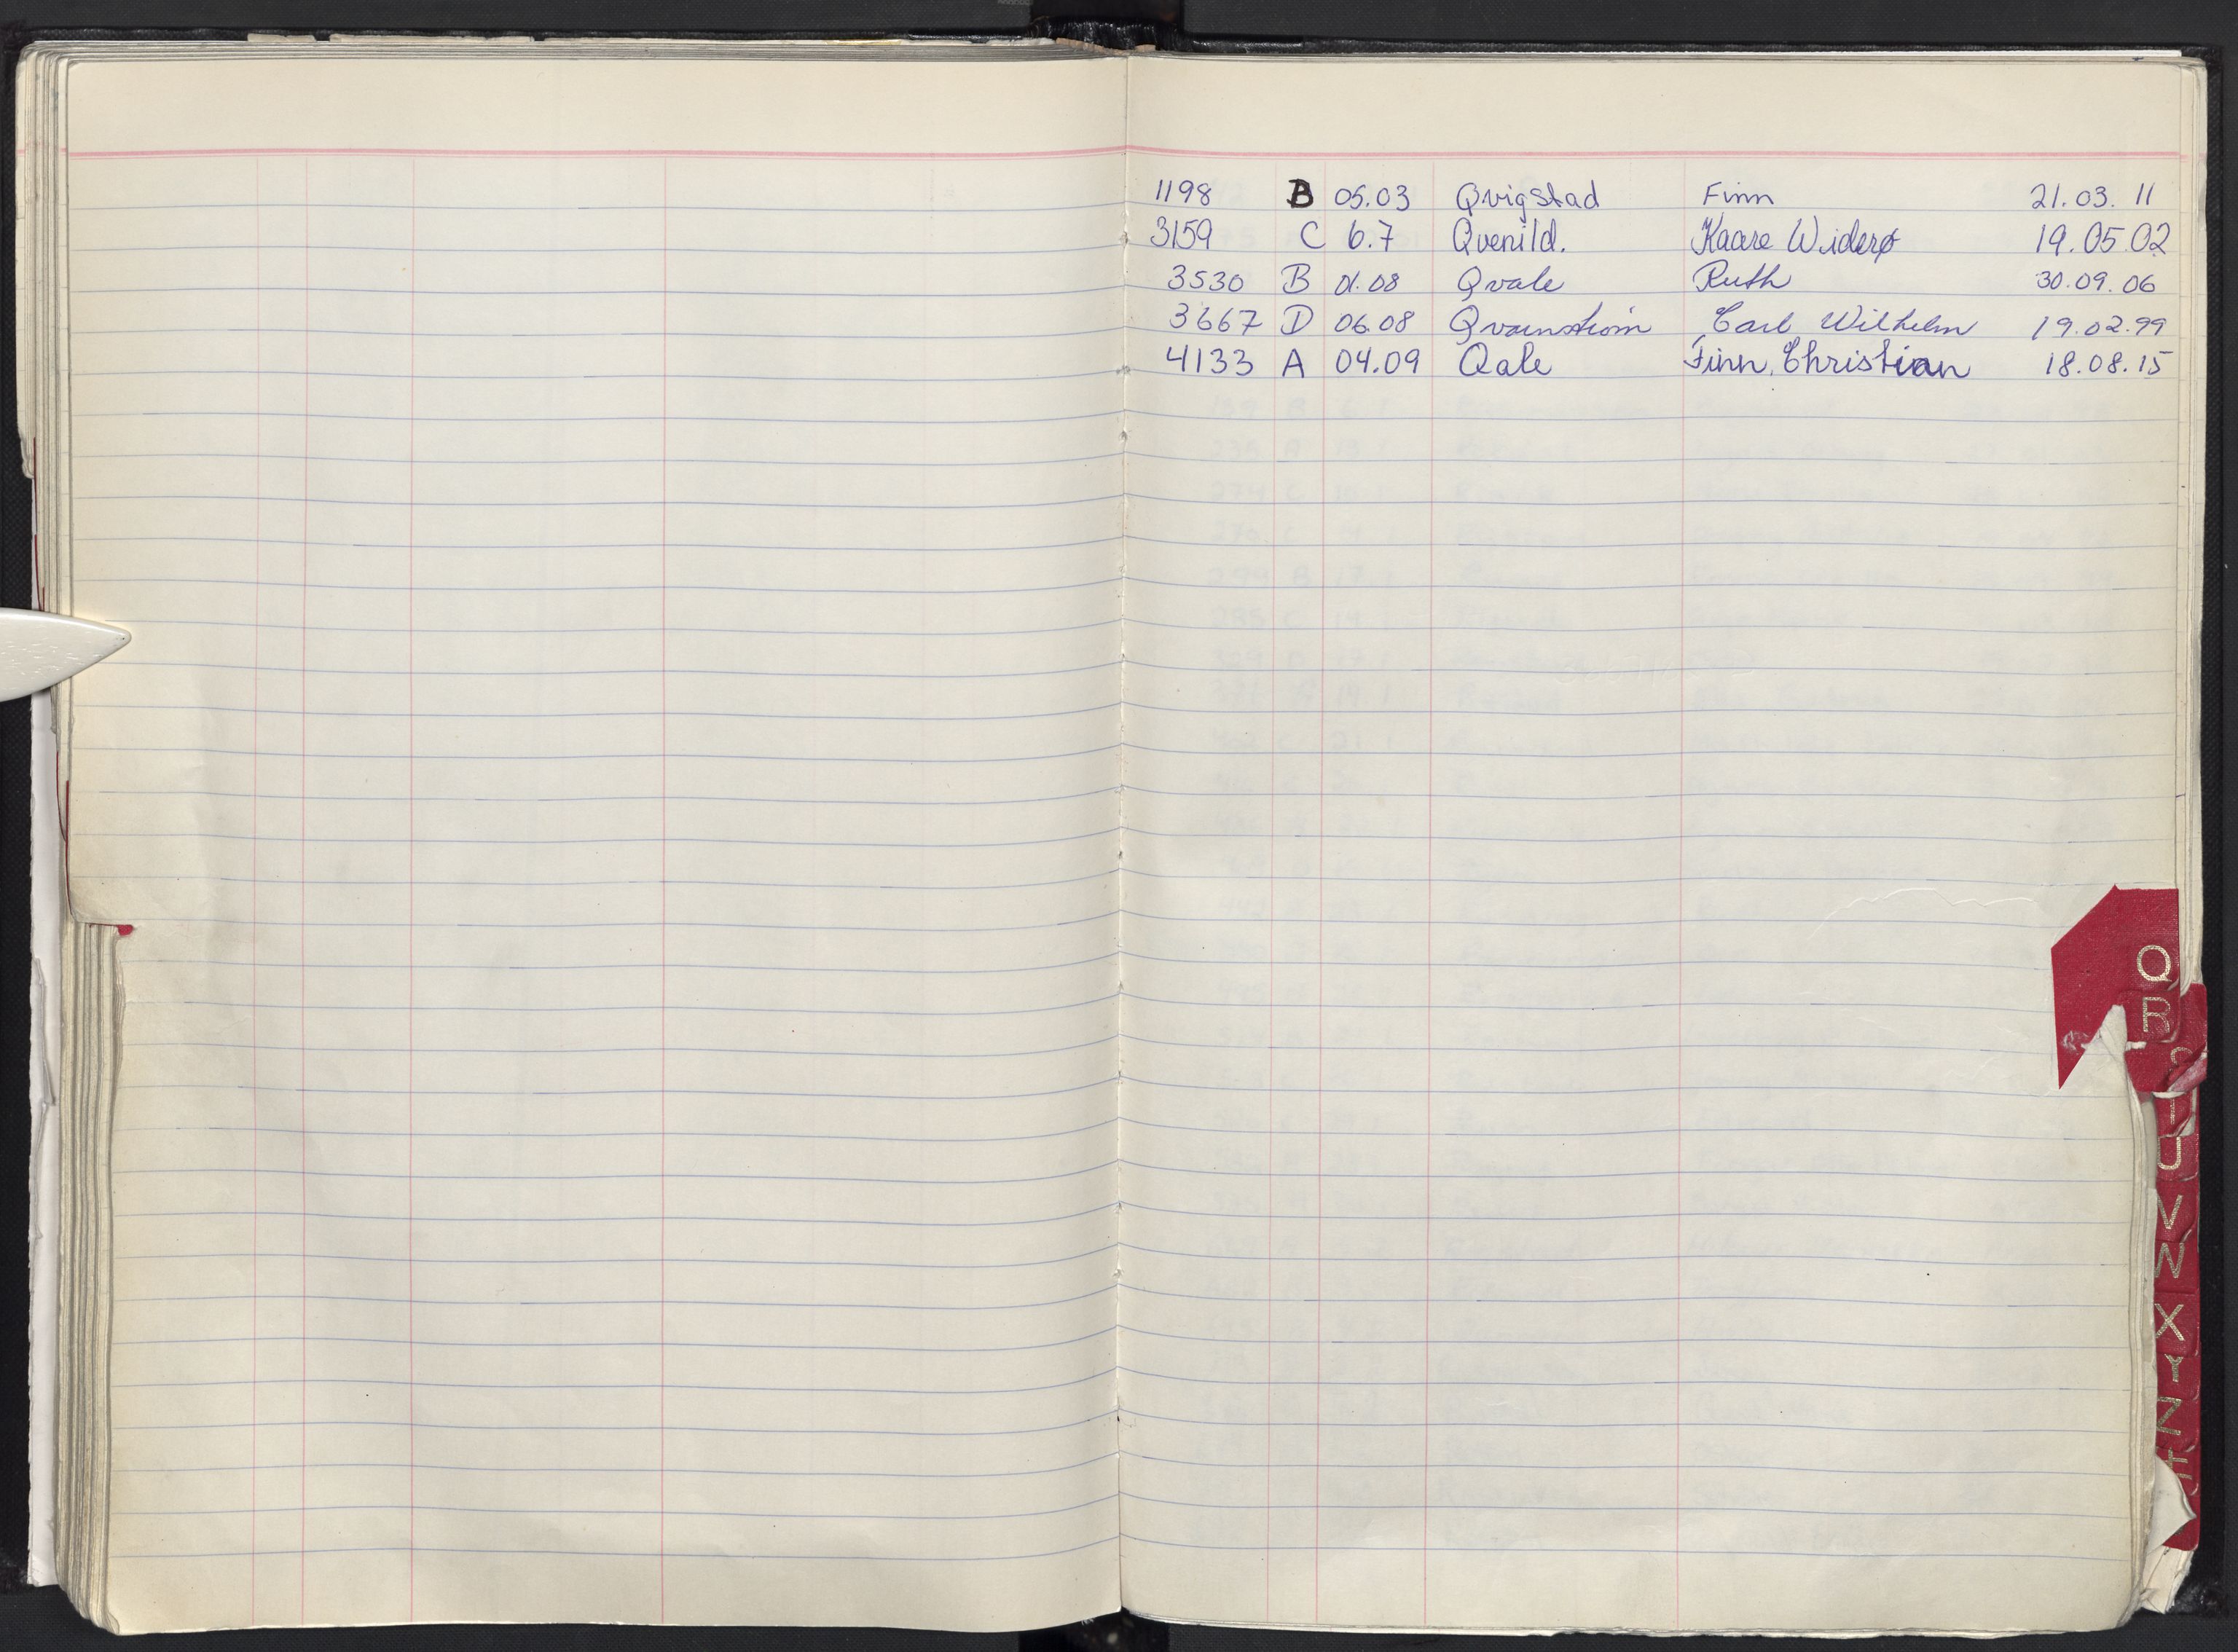 1198 B 05.03 Qvigstad Finn 21.03.11
3159 C 6.7 Qvenild. Kaare Widerø 19.05.02
3530 B 01.08 Qvale Ruth 30.09.06
3667 D 06.08 Qvarnstrøm Carl Wilhelm 19.02.99
4133 A 04.09 Qale Finn Christian 18.08.15
Q
R
S
T
U
V
W
X
Y
Z